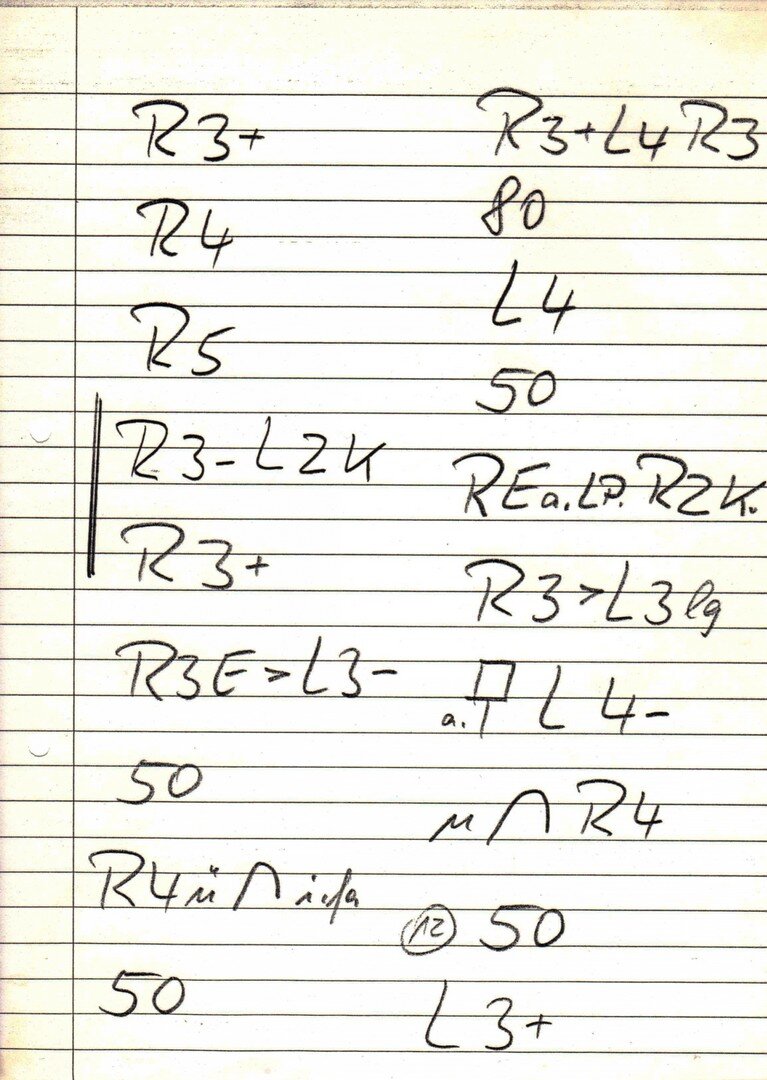 R3+
R4
R5
R3- L2K
R3+
R3E > L3-
50
R4 ü ∩
50
R3+ L4 R3
80
L4
50
RE a. LP. R2K.
R3 > L3 lg
a. L 4-
∩ R4
12 50
L3+